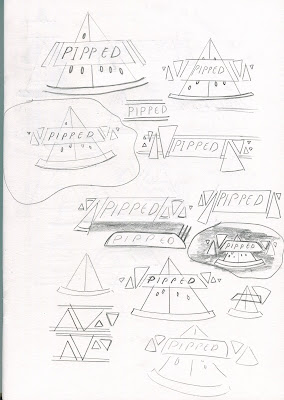 PIPPED
PIPPED
PIPPED
PIPPED
PIPPED
PIPPED
PIPPED
PIPPED
PIPPED
PIPPED
PIPPED